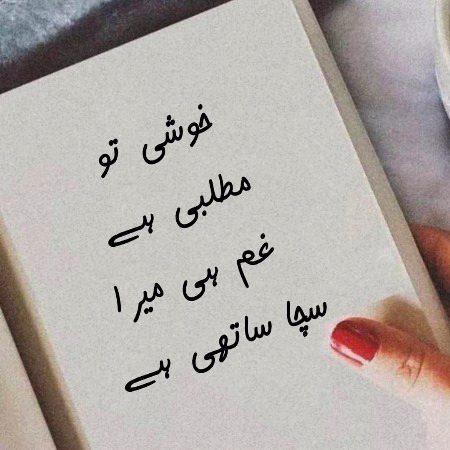 خوشی تو
مطلبی ہے
غم ہی میرا
سچا ساتھی ہے